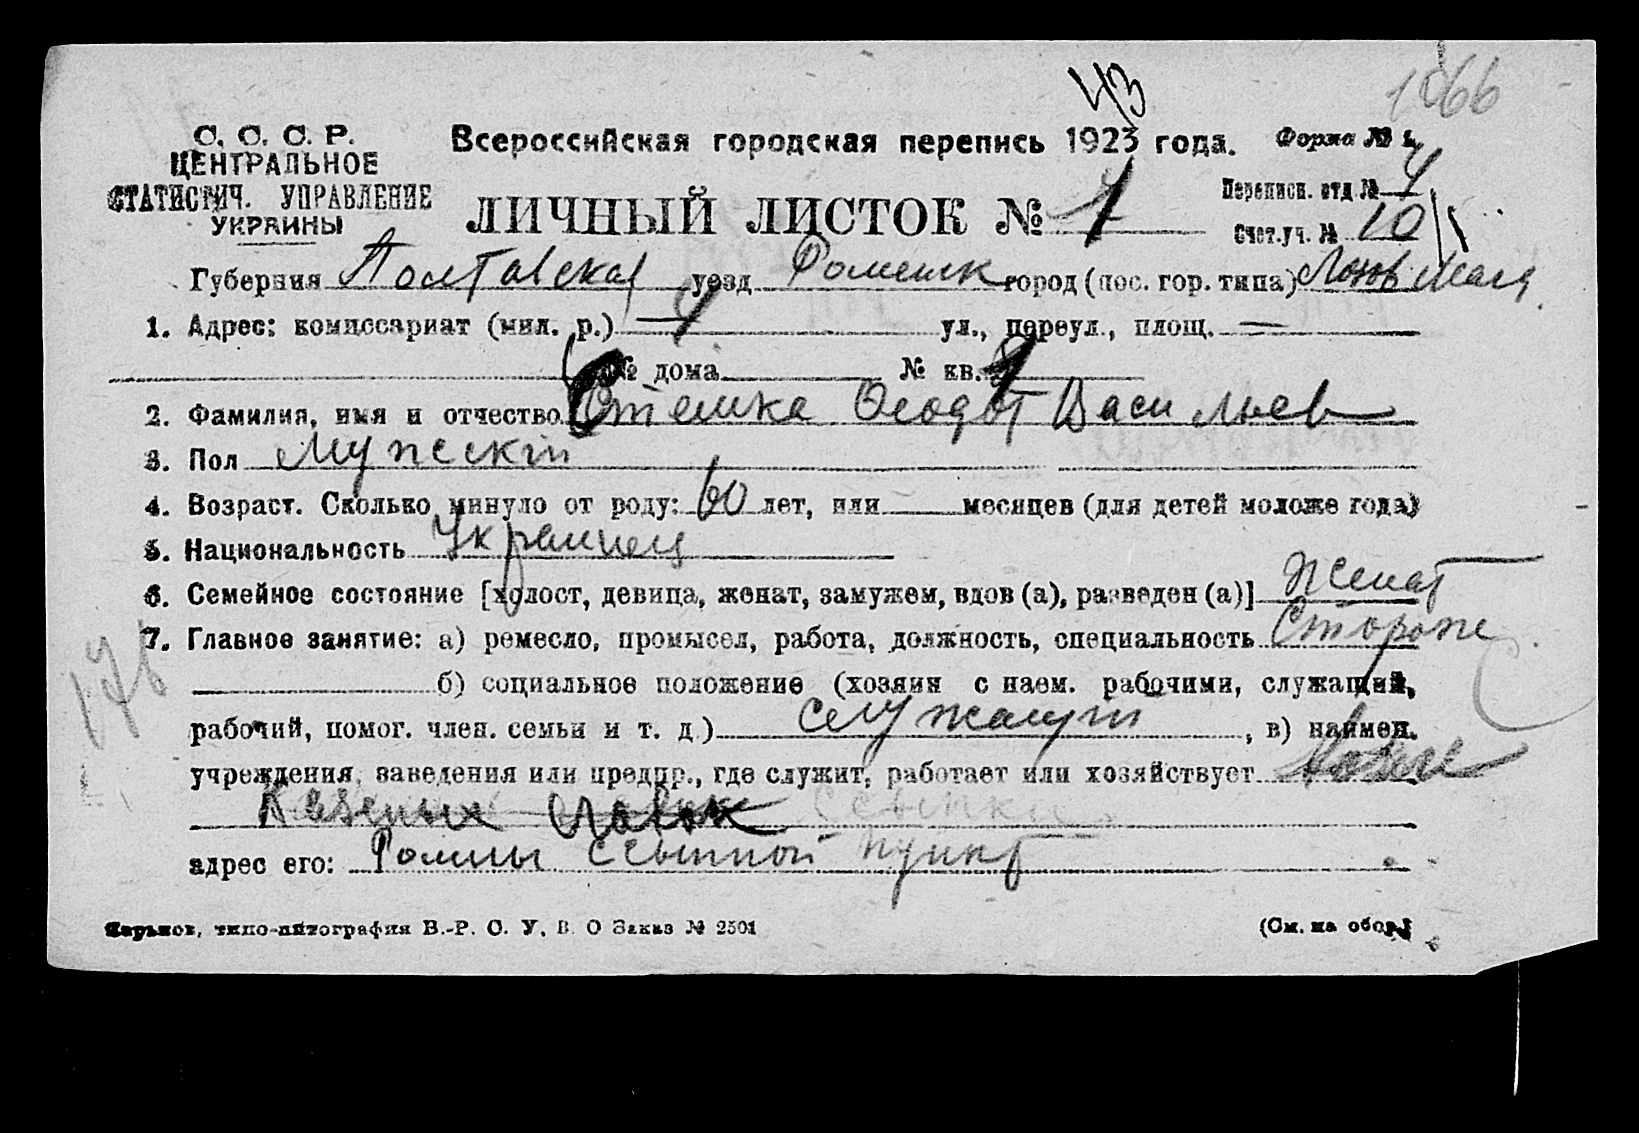 1066
43
С. С. С. Р.
ЦЕНТРАЛЬНОЕ
СТАТИСТИЧ. УПРАВЛЕНИЕ
УКРАИНЫ
Всероссийская городская перепись 1923 года. Форма № 1.
ЛИЧНЫЙ ЛИСТОК № 1
Переписн. отд. №
Счет.уч. № 10
Губерния Полтавская уезд Роменск город (пос. гор. типа)
1. Адрес: комиссариат (мил. р.) — ул., переул., площ. —
№ дома № кв.
2. Фамилия, имя и отчество Стешка Феодот Васильев
3. Пол Мужскій
4. Возраст. Сколько минуло от роду: 60 лет, или месяцев (для детей моложе года)
5. Национальность Украинец
6. Семейное состояние [холост, девица, женат, замужем, вдов (а), разведен (а)] Женат
7. Главное занятие: а) ремесло, промысел, работа, должность, специальность Стороже
б) социальное положение (хозяин с наем. рабочими, служащий,
рабочий, помог. член. семьи и т. д.) служащій, в) наимен.
учреждения, заведения или предпр., где служит, работает или хозяйствует
Казеных
адрес его: Ромны ссыпной пункт
176
Харьков, типо-литография В.-Р. С. У. В. О Заказ № 2501
(См. на обор.)